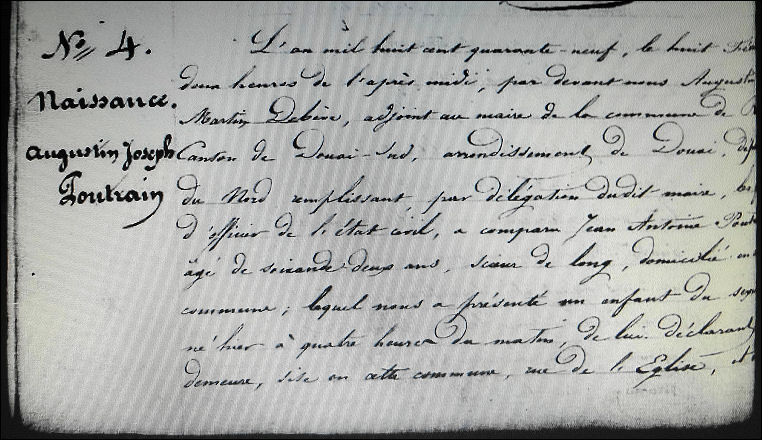 N° 4.
Naissance.
Augustin Joseph
Poutrain
L'an mil huit cent quarante-neuf, le huit
deux heures de l'après midi, par devant nous Augustin
Martin Debève, adjoint au maire de la commune de
Canton de Douai-Sud, arrondissement de Douai,
du Nord remplissant, par délégation dudit maire, les
d'officier de l'état civil, a comparu Jean Antoine
âgé de soixante deux ans, scieur de long, domicilié en
commune; lequel nous a présenté un enfant du sexe
né hier à quatre heures du matin, de lui déclarant
demeure, sise en cette commune, rue de l'Eglise,